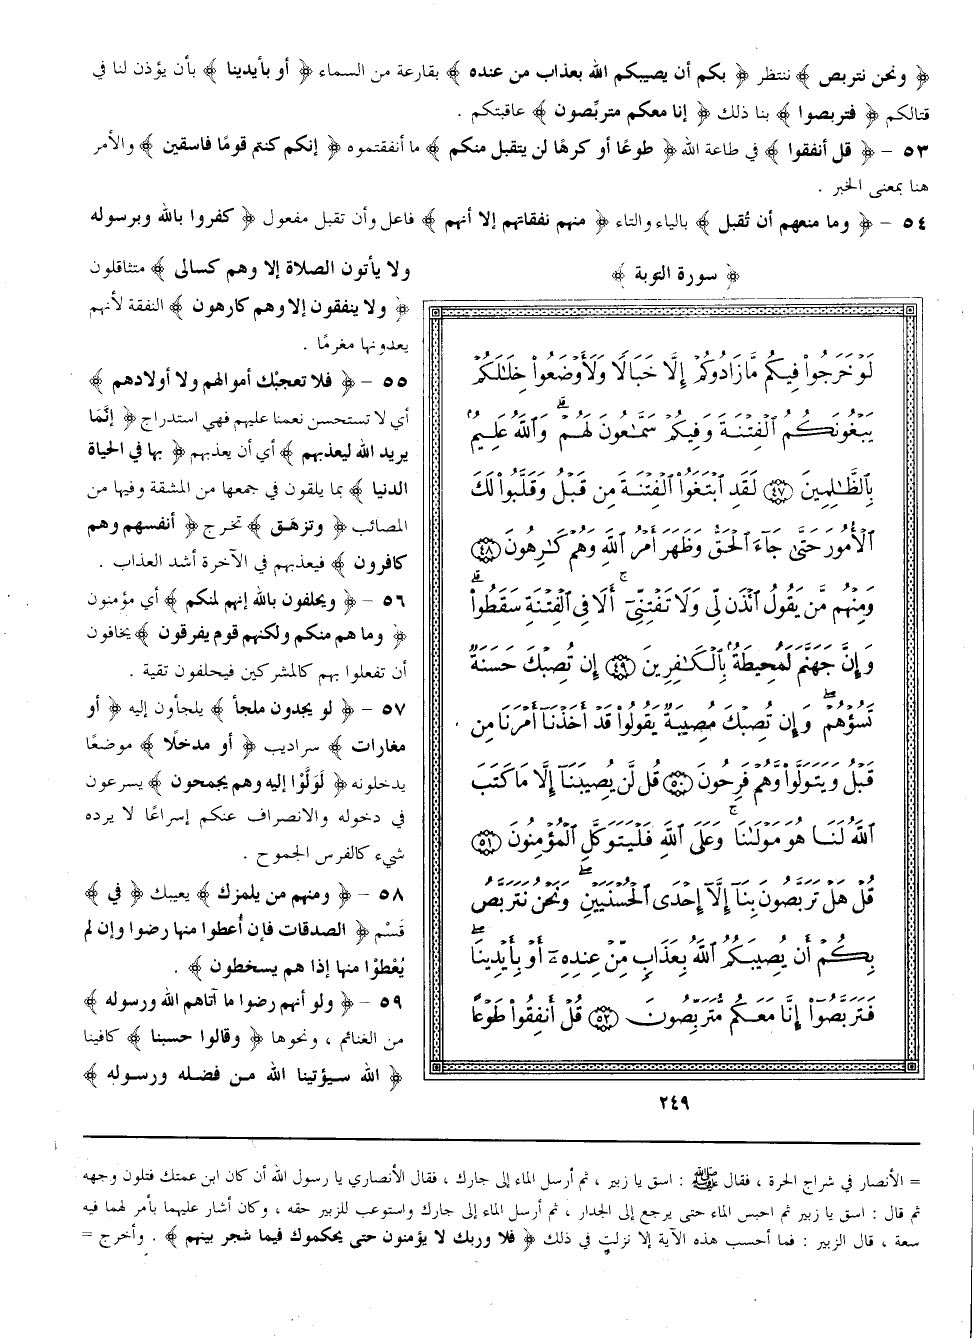 ﴿ ونحن نتربص ﴾ ننتظر ﴿ بكم أن يصيبكم الله بعذاب من عنده ﴾ بقارعة من السماء ﴿ أو بأيدينا ﴾ بأن يؤذن لنا في
قتالكم ﴿ فتربصوا ﴾ بنا ذلك ﴿ إنا معكم متربِّصون ﴾ عاقبتكم .
٥٣ – ﴿ قل أنفقوا ﴾ في طاعة الله ﴿ طوعًا أو كرهًا لن يتقبل منكم ﴾ ما أنفقتموه ﴿ إنكم كنتم قومًا فاسقين ﴾ والأمر
هنا بمعنى الخبر .
٥٤ – ﴿ وما منعهم أن تُقبل ﴾ بالياء والتاء ﴿ منهم نفقاتهم إلا أنهم ﴾ فاعل وأن تقبل مفعول ﴿ كفروا بالله وبرسوله
ولا يأتون الصلاة إلا وهم كسالى ﴾ متثاقلون
﴿ ولا ينفقون إلا وهم كارهون ﴾ النفقة لأنهم
يعدونها مغرمًا .
٥٥ – ﴿ فلا تعجبْك أموالهم ولا أولادهم ﴾
أي لا تستحسن نعمنا عليهم فهي استدراج ﴿ إنَّمَا
يريد الله ليعذبهم ﴾ أي أن يعذبهم ﴿ بها في الحياة
الدنيا ﴾ بما يلقون في جمعها من المشقة وفيها من
المصائب ﴿ وتزهَق ﴾ تخرج ﴿ أنفسهم وهم
كافرون ﴾ فيعذبهم في الآخرة أشد العذاب .
٥٦ – ﴿ ويحلفون بالله إنهم لمنكم ﴾ أي مؤمنون
﴿ وما هم منكم ولكنهم قوم يفرقون ﴾ يخافون
أن تفعلوا بهم كالمشركين فيحلفون تقية .
٥٧ – ﴿ لو يجدون ملجأ ﴾ يلجأون إليه ﴿ أو
مغارات ﴾ سراديب ﴿ أو مدخلًا ﴾ موضعًا
يدخلونه ﴿ لَوَلَّوْا إليه وهم يجمحون ﴾ يسرعون
في دخوله والانصراف عنكم إسراعًا لا يرده
شيء كالفرس الجموح .
٥٨ – ﴿ ومنهم من يلمزك ﴾ يعيبك ﴿ في ﴾
قَسْم ﴿ الصدقات فإن أُعطوا منها رضوا وإن لم
يُعْطَوْا منها إذا هم يسخطون ﴾ .
٥٩ – ﴿ ولو أنهم رضوا ما آتاهم الله ورسوله ﴾
من الغنائم ، ونحوها ﴿ وقالوا حسبنا ﴾ كافينا
﴿ الله سيؤتينا الله من فضله ورسوله ﴾
﴿ سورة التوبة ﴾
لَوْ خَرَجُوا۟ فِيكُم مَّا زَادُوكُمْ إِلَّا خَبَالًا وَلَأَوْضَعُوا۟ خِلَٰلَكُمْ
يَبْغُونَكُمُ ٱلْفِتْنَةَ وَفِيكُمْ سَمَّٰعُونَ لَهُمْ ۗ وَٱللَّهُ عَلِيمٌۢ
بِٱلظَّٰلِمِينَ ٤٧ لَقَدِ ٱبْتَغَوُا۟ ٱلْفِتْنَةَ مِن قَبْلُ وَقَلَّبُوا۟ لَكَ
ٱلْأُمُورَ حَتَّىٰ جَآءَ ٱلْحَقُّ وَظَهَرَ أَمْرُ ٱللَّهِ وَهُمْ كَٰرِهُونَ ٤٨
وَمِنْهُم مَّن يَقُولُ ٱئْذَن لِّى وَلَا تَفْتِنِّىٓ ۚ أَلَا فِى ٱلْفِتْنَةِ سَقَطُوا۟ ۗ
وَإِنَّ جَهَنَّمَ لَمُحِيطَةٌۢ بِٱلْكَٰفِرِينَ ٤٩ إِن تُصِبْكَ حَسَنَةٌ
تَسُؤْهُمْ ۖ وَإِن تُصِبْكَ مُصِيبَةٌ يَقُولُوا۟ قَدْ أَخَذْنَآ أَمْرَنَا مِن
قَبْلُ وَيَتَوَلَّوا۟ وَّهُمْ فَرِحُونَ ٥٠ قُل لَّن يُصِيبَنَآ إِلَّا مَا كَتَبَ
ٱللَّهُ لَنَا هُوَ مَوْلَىٰنَا ۚ وَعَلَى ٱللَّهِ فَلْيَتَوَكَّلِ ٱلْمُؤْمِنُونَ ٥١
قُلْ هَلْ تَرَبَّصُونَ بِنَآ إِلَّآ إِحْدَى ٱلْحُسْنَيَيْنِ ۖ وَنَحْنُ نَتَرَبَّصُ
بِكُمْ أَن يُصِيبَكُمُ ٱللَّهُ بِعَذَابٍ مِّنْ عِندِهِۦٓ أَوْ بِأَيْدِينَا ۖ
فَتَرَبَّصُوٓا۟ إِنَّا مَعَكُم مُّتَرَبِّصُونَ ٥٢ قُلْ أَنفِقُوا۟ طَوْعًا
٢٤٩
= الأنصار في شراج الحرة ، فقال ﷺ : اسق يا زبير ، ثم أرسل الماء إلى جارك ، فقال الأنصاري يا رسول الله أن كان ابن عمتك فتلون وجهه
ثم قال : اسق يا زبير ثم احبس الماء حتى يرجع إلى الجدار ، ثم أرسل الماء إلى جارك واستوعب للزبير حقه ، وكان أشار عليهما بأمر لهما فيه
سعة ، قال الزبير : فما أحسب هذه الآية إلا نزلت في ذلك ﴿ فلا وربك لا يؤمنون حتى يحكموك فيما شجر بينهم ﴾ . وأخرج =